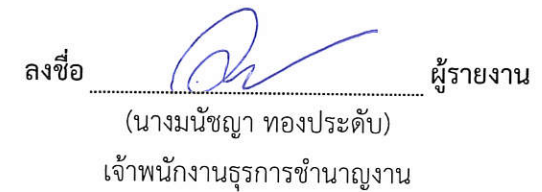 ลงชื่อ ผู้รายงาน
(นางมนัชญา ทองประดับ)
เจ้าพนักงานธุรการชำนาญงาน